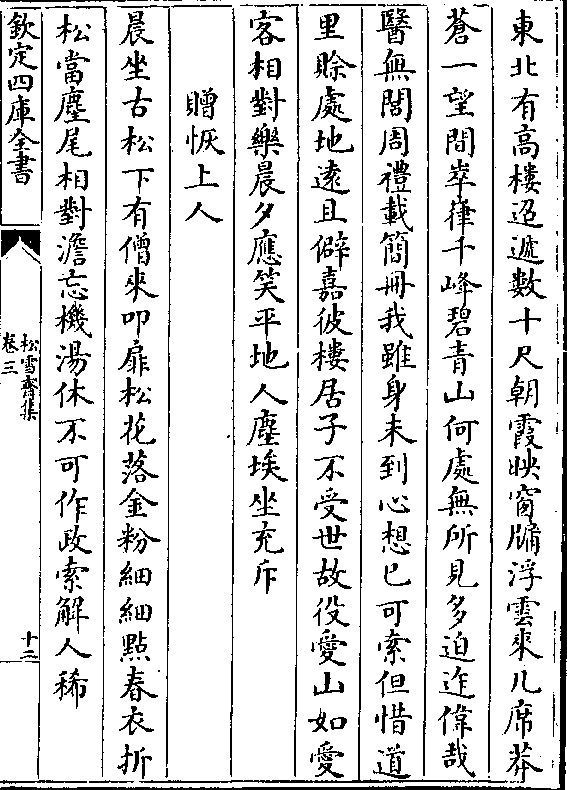 東北有高樓迢遞數十尺朝霞映窗牖浮雲來几席莽
蒼一望間崒嵂千峰碧青山何處無所見多迫迮偉哉
醫無閭周禮載簡冊我雖身未到心想已可索但惜道
里賒處地遠且僻嘉彼樓居子不受世故役愛山如愛
客相對樂晨夕應笑平地人塵埃坐充斥
贈恢上人
晨坐古松下有僧來叩扉松花落金粉細細點春衣折
松當麈尾相對澹忘機湯休不可作政索解人稀
欽定四庫全書
松雪齋集
卷三
十二